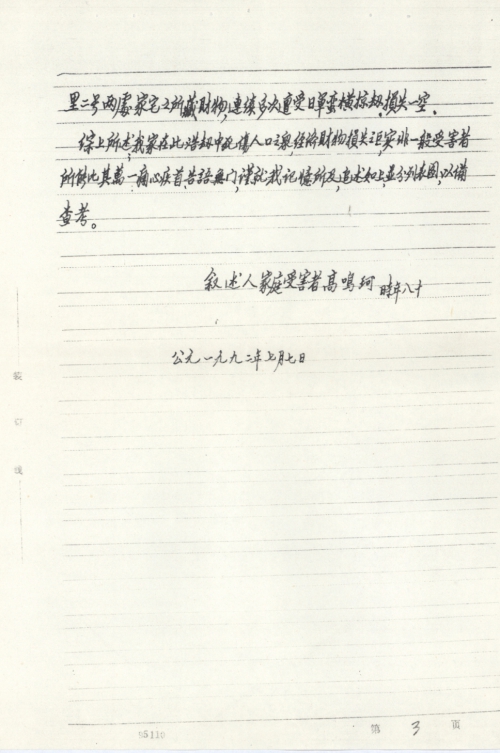 里二号两處家宅之所藏財物,連续多次遭受日軍蛮横掠劫,損失一空.
综上所述,我家在此浩劫中死傷人口之眾,经济財物損失之巨,实非一般受害者
所能比其萬一,痛心疾首,告語無门,谨就我记憶所及,追述如上,並分列表图,以備
查考。
叙述人家庭受害者高鳴珂 時年八十
公元一九九二年七月七日
装
订
线
95.110
第 3 页